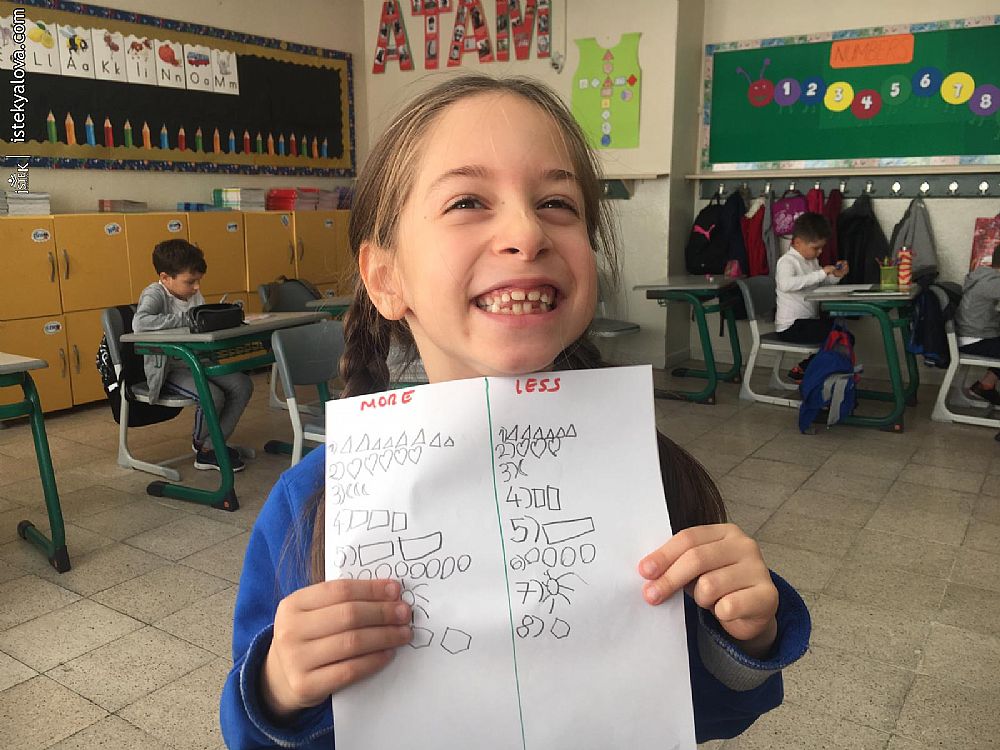 istekyalova.com
iSTeK
ATAM
Ll Aa Kk İi Nn Oo Mm
NUMBERS
1 2 3 4 5 6 7 8
MORE LESS
1) 1)
2) 2)
3) 3)
4) 4)
5) 5)
6)
7)
8)